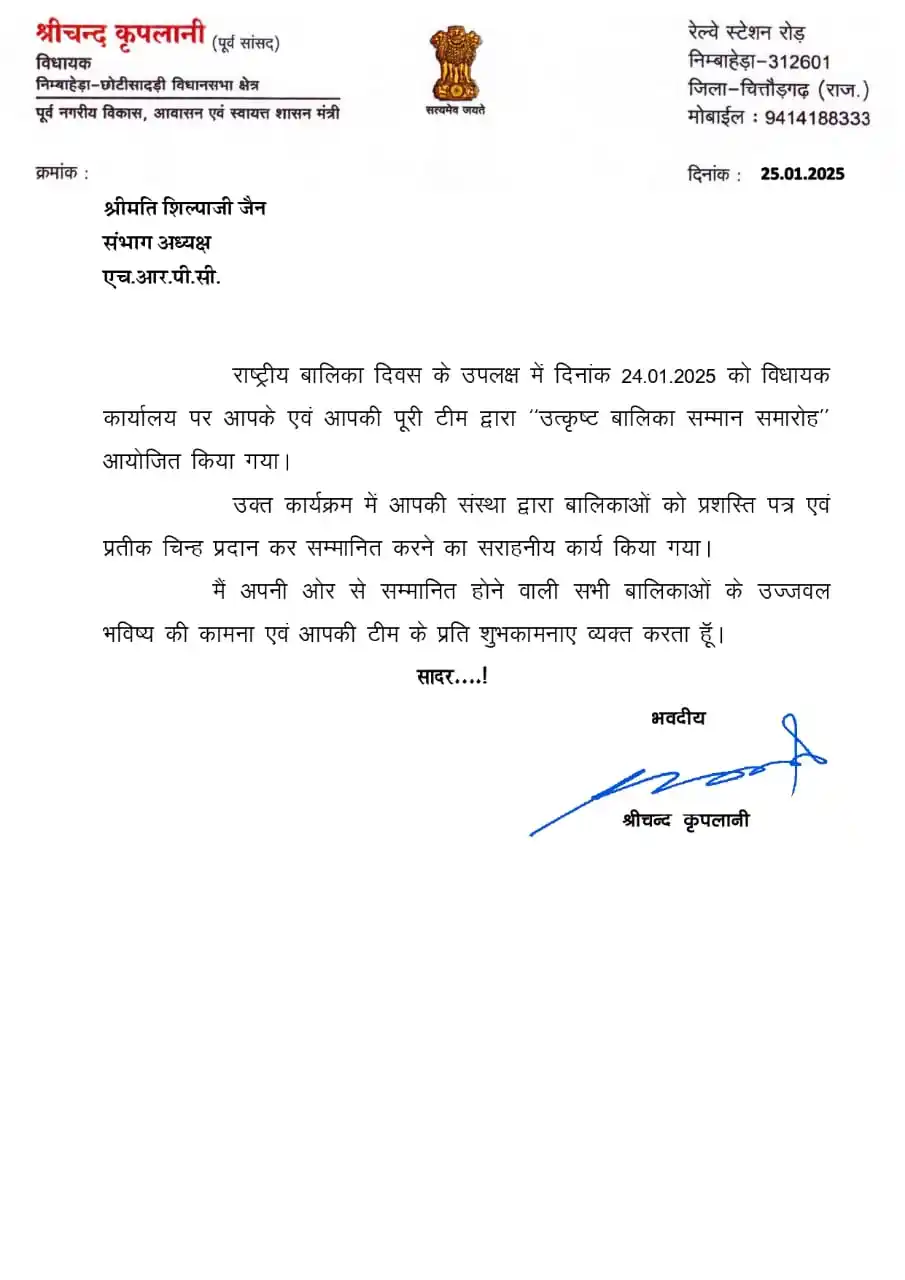 श्रीचन्द कृपलानी (पूर्व सांसद)
विधायक
निम्बाहेड़ा-छोटीसादड़ी विधानसभा क्षेत्र
पूर्व नगरीय विकास, आवासन एवं स्वायत्त शासन मंत्री
सत्यमेव जयते
रेल्वे स्टेशन रोड़
निम्बाहेड़ा-312601
जिला-चित्तौड़गढ़ (राज.)
मोबाईल : 9414188333
क्रमांक :
दिनांक : 25.01.2025
श्रीमति शिल्पाजी जैन
संभाग अध्यक्ष
एच.आर.पी.सी.
राष्ट्रीय बालिका दिवस के उपलक्ष में दिनांक 24.01.2025 को विधायक
कार्यालय पर आपके एवं आपकी पूरी टीम द्वारा “उत्कृष्ट बालिका सम्मान समारोह”
आयोजित किया गया।
उक्त कार्यक्रम में आपकी संस्था द्वारा बालिकाओं को प्रशस्ति पत्र एवं
प्रतीक चिन्ह प्रदान कर सम्मानित करने का सराहनीय कार्य किया गया।
मैं अपनी ओर से सम्मानित होने वाली सभी बालिकाओं के उज्जवल
भविष्य की कामना एवं आपकी टीम के प्रति शुभकामनाए व्यक्त करता हूॅ।
सादर....!
भवदीय
श्रीचन्द कृपलानी